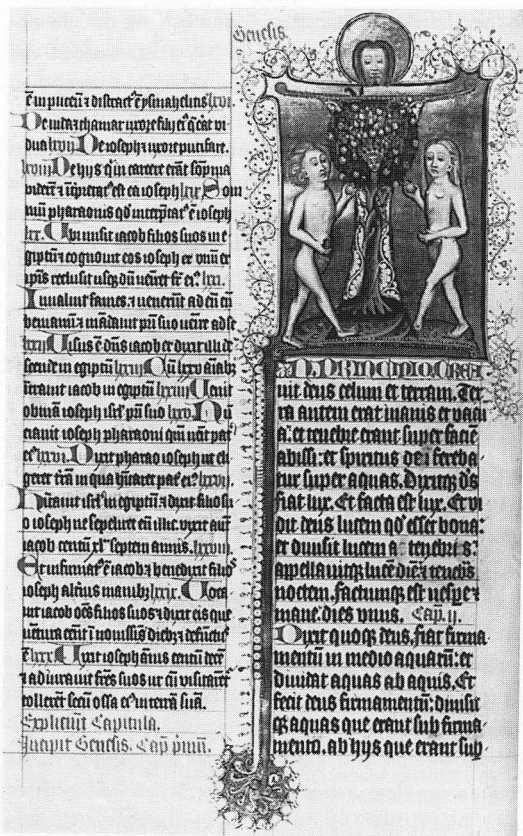 Genesis.
ē in puteū ⁊ distract' ē ysmahelitis lxvi.
De iuda ⁊ thamar uxore filii ei' q̄ erāt vi
dua lxvii De ioseph ⁊ uxore putifare.
lxviii De hys q̄ in carcere erāt sōpnia
ioseph lxix Som
niū pharaonis qd' ē ioseph
lxx. Ubi misit iacob filios suos in e
giptū ⁊ cognovit eos ioseph et vnū ex
ipis reclusit usq̨ dū ueniret fr̄ ei'. lxxi.
Inualuit fames. ⁊ uenerūt ad eū cū
beniamin ⁊ mādauit pr̄i suo uenire ad se
lxxii Uisus ē dn̄s iacob et dixit illi de
scende in egiptū lxxiii Cū lxx aīabꝫ
ītrauit iacob in egiptū lxxiiii Uenit
obuiā ioseph isrl' pr̄i suo lxxv. Nū
ciauit ioseph pharaoni qm̄ uēit pat'
ei' lxxvi. Dixit pharao ioseph ut eli
geret trā in qua hītaret pat' ei'. lxxvii
Hītauit isrl' in egiptū ⁊ dixit filio su
o ioseph ne sepeliret eū illic. vixit aūt
iacob centū xl' septem annis. lxxviii
Et infirmat' ē iacob ⁊ benedixit filios
ioseph altius manibꝫ lxxix. Uoca
uit iacob oēs filios suos ⁊ dixit eis que
uētura erūt ī nouissīs diebꝫ ⁊ defūct'
ē lxxx Uixit ioseph annis centū decē
⁊ adiurauit frēs suos ut cū visitaret'
tollerēt secū ossa ei' in terrā suā.
Expliciūt Capitula.
Incipit Genesis. Cap̄ p̄mū.
IN PRINCIPIO CREA
uit deus celum et terram. Ter
ra autem erat inanis et vacu
a. et tenebre erant super faciē
abissi. et spiritus dei fereba
tur super aquas. Dixitq̨ d's
fiat lux. Et facta est lux. Et vi
dit deus lucem qd' esset bona:
et diuisit lucem a tenebris:
appellauitq̨ lucē diē ⁊ tenebras
noctem. factumq̨ est uespe ⁊
mane. dies vnus. Cap̄. ij.
Dixit quoq̨ deus. fiat firma
mentū in medio aquarū: et
diuidat aquas ab aquis. Et
fecit deus firmamentū: diuisit
q̨ aquas que erant sub firma
mento. ab hys que erant sup